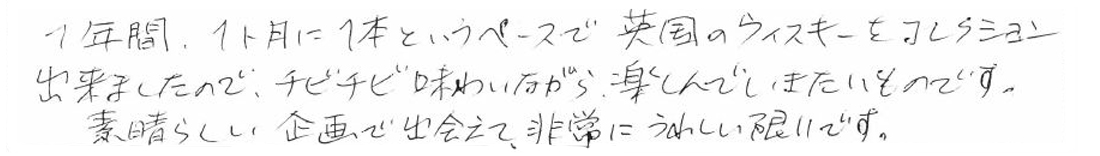 1年間、1ト月に1本というペースで英国のウィスキーをコレクション
出来ましたので、チビチビ味わいながら、楽しんでいきたいものです。
素晴らしい企画で出会えて、非常にうれしい限りです。